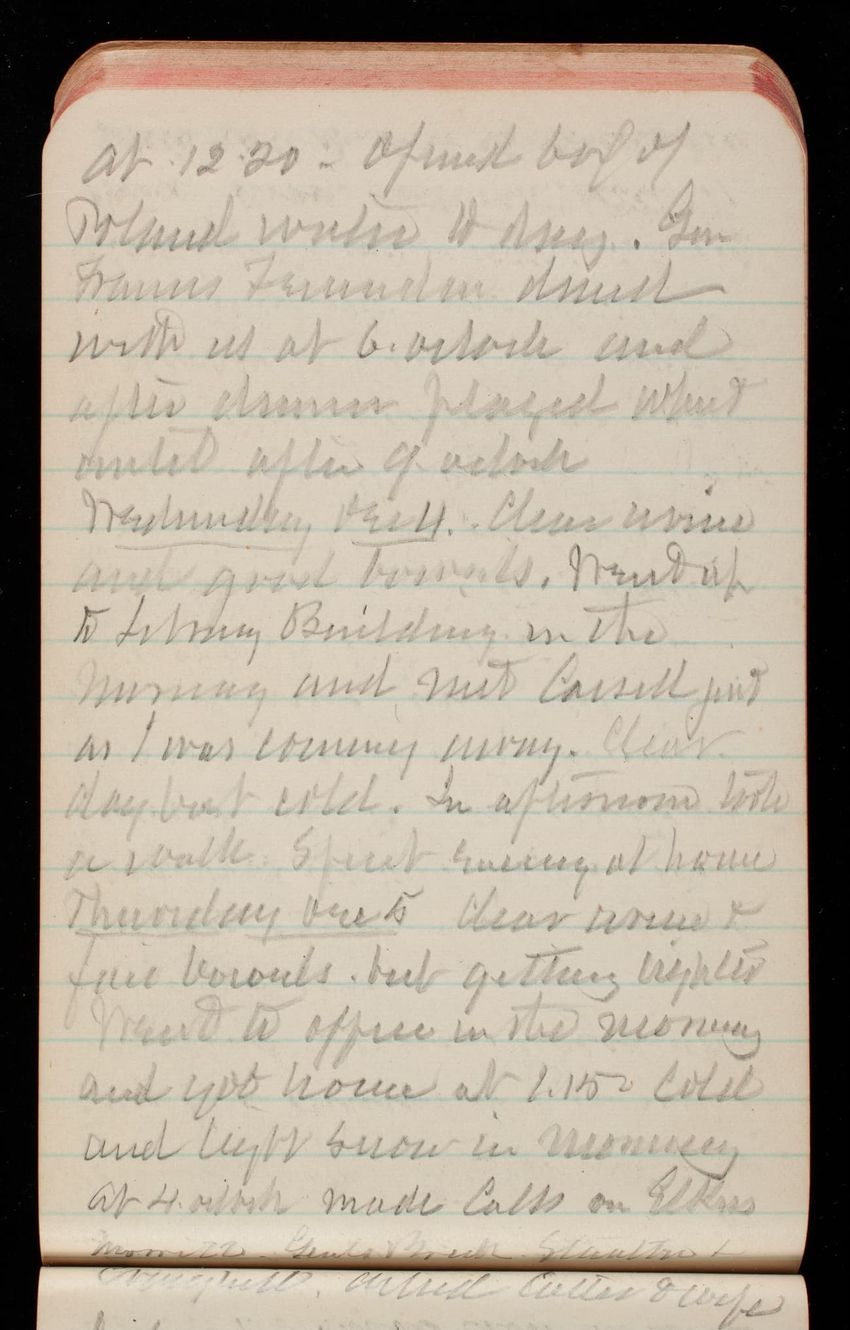 at 12.20 - Opened box of
Poland water to day. Gen
Francis Fessenden dined
with us at 6. oclock and
after dinner played whist
until after 9 oclock
Wednesday Dec 4. Clear urine
and good bowels. Went up
to Library Building in the
morning and met Casselljust
as I was coming away. Clear
day but cold. In afternoon took
a walk. Spent evening at home
Thursday Dec 5 Clear urine &
fair bowels. but getting tighter
Went to office in the morning
and got home at 1.15 - Cold
and light snow in morning
at 4. oclock made Calls on Elkins
Morrill Genls Breck
Alfred Cutter & wife